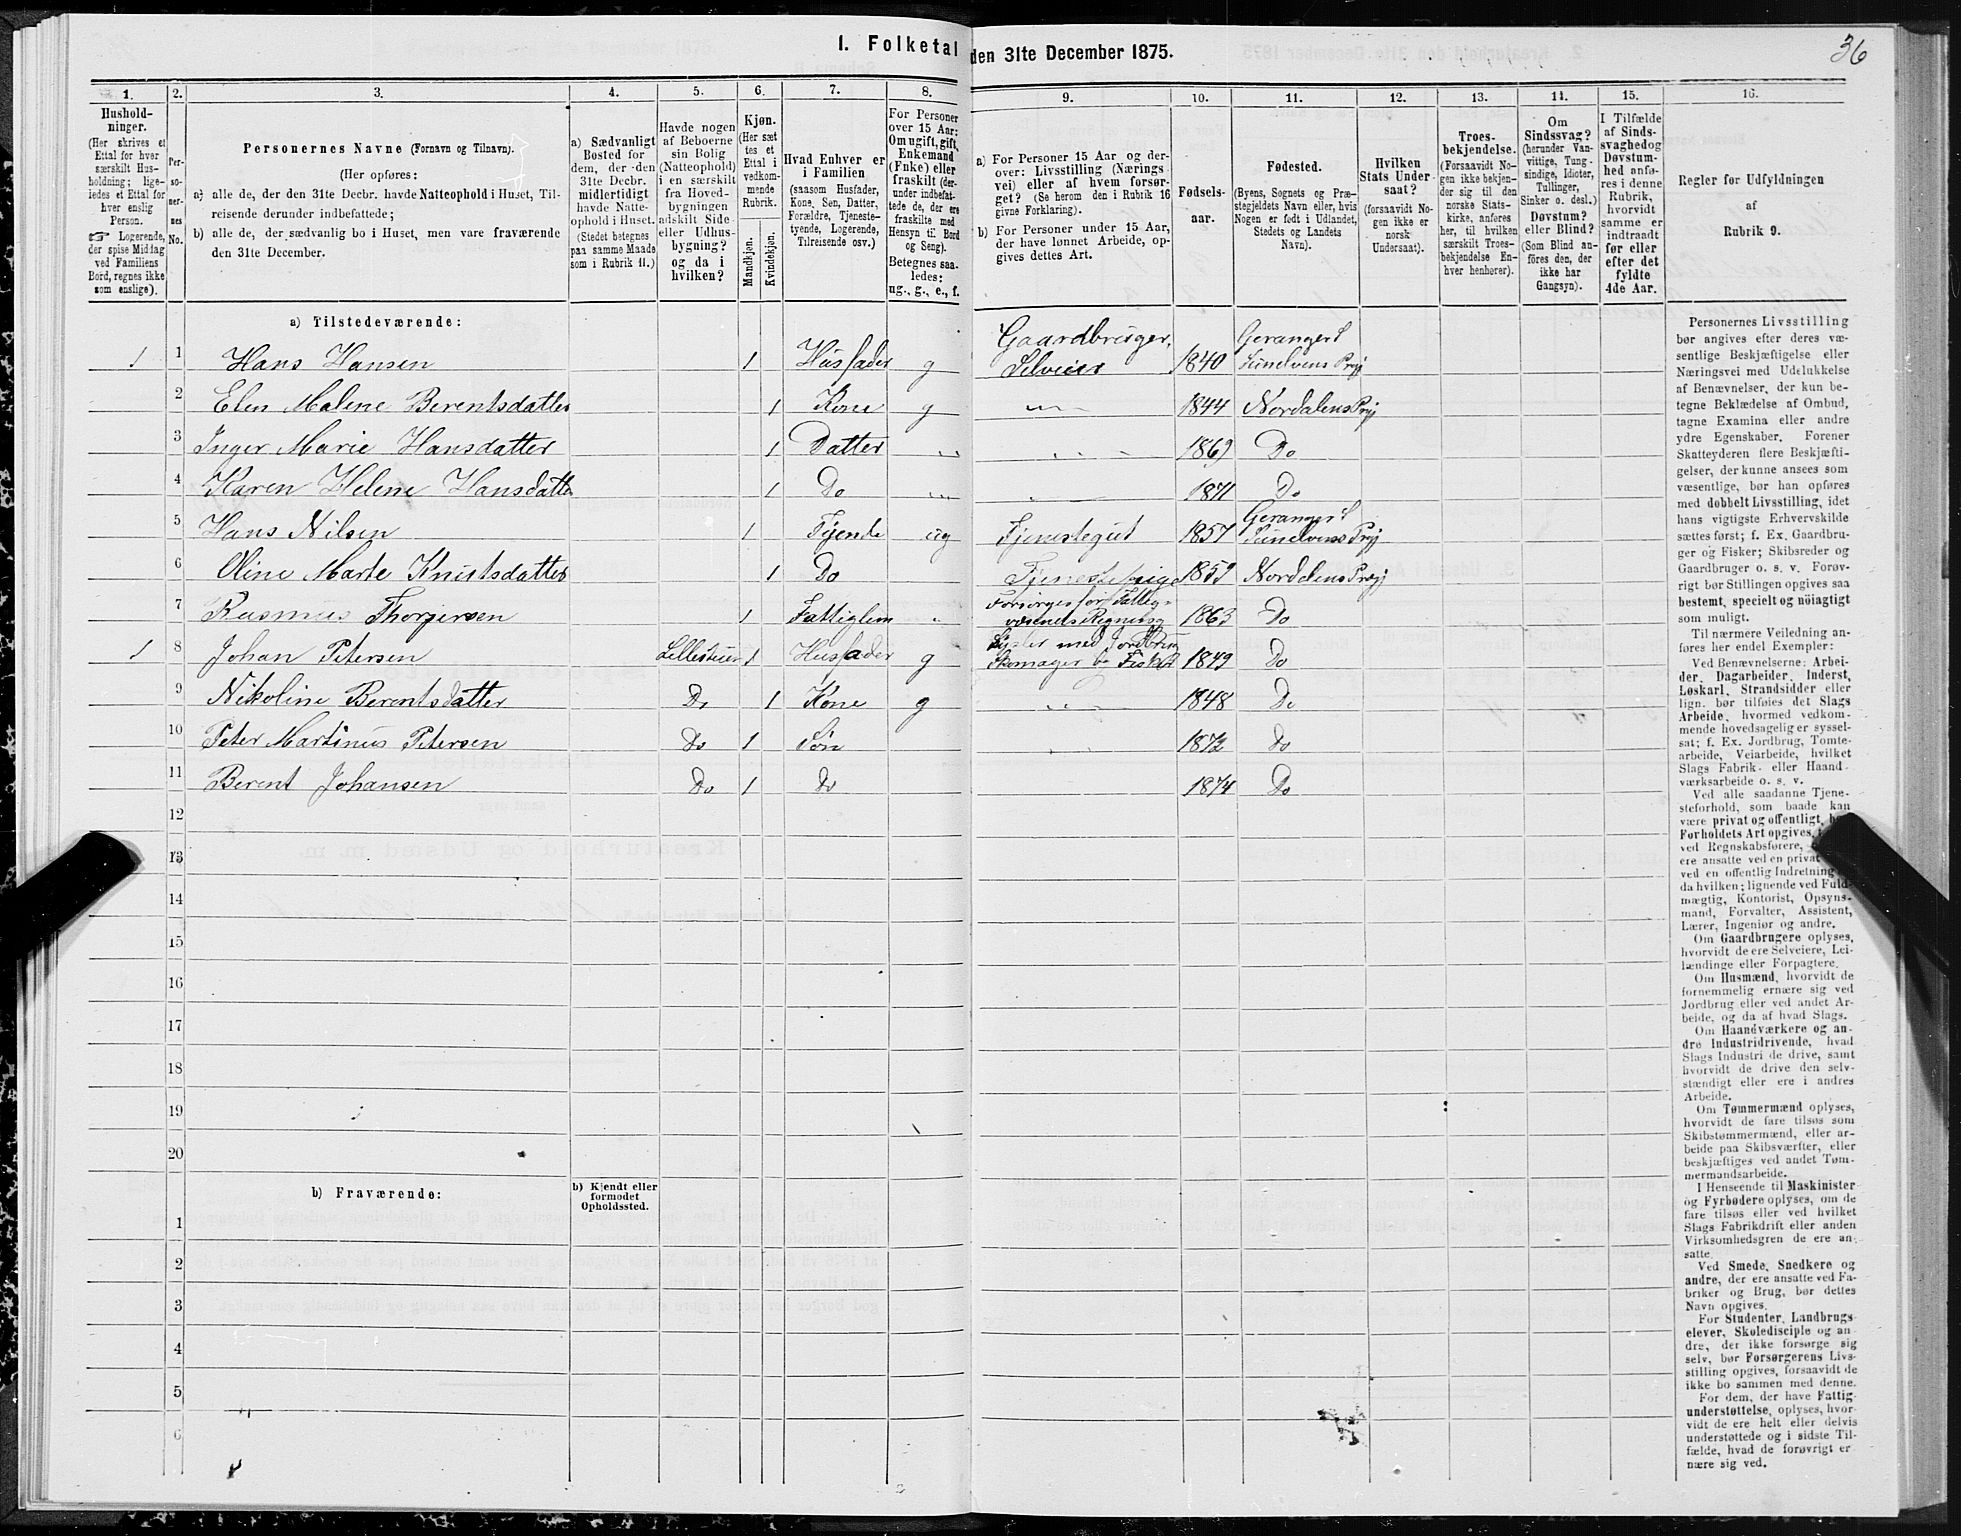 I. Folketal den 31te December 1875.
36
1. 2. 3. 4. 5. 6. 7. 8. 9. 10. 11. 12. 13. 14. 15. 16.
Hushold-
ninger.
(Her skrives et
Ettal for hver
særskilt Hus-
holdning; lige-
ledes et Ettal for
hver enslig
Person.
☞ Logerende,
der spise Middag
ved Familiens
Bord, regnes ikke
som enslige).
Per-
so-
ner-
nes
No.
Personernes Navne (Fornavn og Tilnavn).
(Her opføres:
a) alle de, der den 31te Decbr. havde Natteophold i Huset, Til-
reisende derunder indbefattede;
b) alle de, der sædvanlig bo i Huset, men vare fraværende
den 31te December.
a) Sædvanligt
Bosted for
dem, der den
31te Decbr.
midlertidigt
havde Natte-
ophold i Huset.
(Stedet betegnes
paa samme Maade
som i Rubrik 11.)
Havde nogen
af Beboerne
sin Bolig
(Natteophold)
i en særskilt
fra Hoved-
bygningen
adskilt Side-
eller Udhus-
bygning?
og da i
hvilken?
Kjøn.
(Her sæt
tes et
Ettal i
vedkom-
mende
Rubrik.
Mandkjøn.
Kvindekjøn.
Hvad Enhver er
i Familien
(saasom Husfader,
Kone, Søn, Datter,
Forældre, Tjeneste-
tyende, Logerende,
Tilreisende osv.)
For Personer
over 15 Aar:
Om ugift, gift,
Enkemand
(Enke) eller
fraskilt (der-
under indbefat-
tede de, der ere
fraskilte med
Hensyn til Bord
og Seng).
Betegnes saa-
ledes:
ug., g., e., f.
a) For Personer 15 Aar og der-
over: Livsstilling (Nærings
vei) eller af hvem forsør-
get? (Se herom den i Rubrik 16
givne Forklaring).
b) For Personer under 15 Aar,
der have lønnet Arbeide, op-
gives dettes Art.
Fødsels-
aar.
Fødested.
(Byens, Sognets og Præ-
stegjeldets Navn eller, hvis
Nogen er født i Udlandet,
Stedets og Landets
Navn).
Hvilken
Stats Under-
saat?
(forsaavidt No-
gen ikke er
norsk
Undersaat).
Troes-
bekjendelse.
(Forsaavidt No-
gen ikke bekjen-
der sig til den
norske Stats-
kirke, anføres
her, til hvilken
særskilt Troes-
bekjendelse En-
hver henhører).
Om
Sindssvag?
(herunder Van-
vittige, Tung-
sindige, Idioter,
Tullinger,
Sinker o. desl.)
Døvstum?
eller Blind?
(Som Blind an-
føres den, der
ikke har
Gangsyn).
I Tilfælde
af Sinds-
svaghed og
Døvstum-
hed anfø-
res i denne
Rubrik,
hvorvidt
samme er
indtraadt
før eller
efter det
fyldte
4de Aar.
Regler for Udfyldningen
af
Rubrik 9.
a) Tilstedeværende:
1 1 Hans Hansen 1 Husfader g Gaardbruger, Selveier 1840 Geranger S Sunelvens Prgj
2 Elen Malene Berentsdatter 1 Kone g 1844 Nordalens Prgj
3 Inger Marie Hansdatter 1 Datter 1869 Do
4 Karen Helene Hansdatter 1 Do 1871 Do
5 Hans Nilsen 1 Tjende ug Tjenestegut 1857 Geranger S Sunelvens Prgj
6 Oline Marte Knutsdatter 1 Do Tjenestepige 1859 Nordalens Prgj
7 Rasmus Thorgersen 1 Fattiglem Forsørges for Fatteg- væsenets Regning 1863 Do
1 8 Johan Petersen 1 Husfader g med Jordbrug Skomager Fisker 1849 Do
9 Nikoline Berentsdatter Do 1 Kone g 1848 Do
10 Peter Martinus Petersen Do 1 Søn 1872 Do
11 Berent Johansen Do 1 Do 1874 Do
12
13
14
15
16
17
18
19
20
b) Fraværende:
b) Kjendt eller
formodet
Opholdssted.
1
2
3
4
5
6
Personernes Livsstilling
bør angives efter deres væ-
sentlige Beskjæftigelse eller
Næringsvei med Udelukkelse
af Benævnelser, der kun be-
tegne Beklædelse af Ombud,
tagne Examina eller andre
ydre Egenskaber. Forener
Skatteyderen flere Beskjæfti-
gelser, der kunne ansees som
væsentlige, bør han opføres
med dobbelt Livsstilling, idet
hans vigtigste Erhvervskilde
sættes først; f. Ex. Gaardbru-
ger og Fisker; Skibsreder og
Gaardbruger o. s. v. Forøv-
rigt bør Stillingen opgives saa
bestemt, specielt og nøiagtigt
som muligt.
Til nærmere Veiledning an-
føres her endel Exempler:
Ved Benævnelserne: Arbei-
der, Dagarbeider, Inderst,
Løskarl, Strandsidder eller
lign. bør tilføies det Slags
Arbeide, hvormed vedkom-
mende hovedsagelig er syssel-
sat; f. Ex. Jordbrug, Tomte-
arbeide, Veiarbeide, hvilket
Slags Fabrik- eller Haand-
værksarbeide o. s. v.
Ved alle saadanne Tjene-
steforhold, som baade kan
være privat og offentligt, bør
Forholdets Art opgives,
ved Regnskabsførere,
ere ansatte ved en privat
ved en offentlig Indretning
da hvilken; lignende ved Fuld-
mægtig, Kontorist, Opsyns-
mand, Forvalter, Assistent,
Lærer, Ingeniør og andre.
Om Gaardbrugere oplyses,
hvorvidt de ere Selveiere, Lei-
lændinge eller Forpagtere.
Om Husmænd, hvorvidt de
fornemmelig ernære sig ved
Jordbrug eller ved andet Ar-
beide, og da af hvad Slags.
Om Haandværkere og an-
dre Industridrivende, hvad
Slags Industri de drive, samt
hvorvidt de drive den selv-
stændigt eller ere i andres
Arbeide.
Om Tømmermænd oplyses,
hvorvidt de fare tilsøs som
Skibstømmermænd, eller ar-
beide paa Skibsværfter, eller
beskjæftiges ved andet Tøm-
mermandsarbeide.
I Henseende til Maskinister
og Fyrbødere oplyses, om de
fare tilsøs eller ved hvilket
Slags Fabrikdrift eller anden
Virksomhedsgren de ere an-
satte.
Ved Smede, Snedkere og
andre, der ere ansatte ved Fa-
briker og Brug, bør dettes
Navn opgives.
For Studenter, Landbrugs-
elever, Skoledisciple og an-
dre, der ikke forsørge sig
selv, bør Forsørgerens Livs-
stilling opgives, forsaavidt de
ikke bo sammen med denne.
For dem, der have Fattig-
understøttelse, oplyses, hvor-
vidt de ere helt eller delvis
understøttede og i sidste Til-
fælde, hvad de forøvrigt er-
nære sig ved.